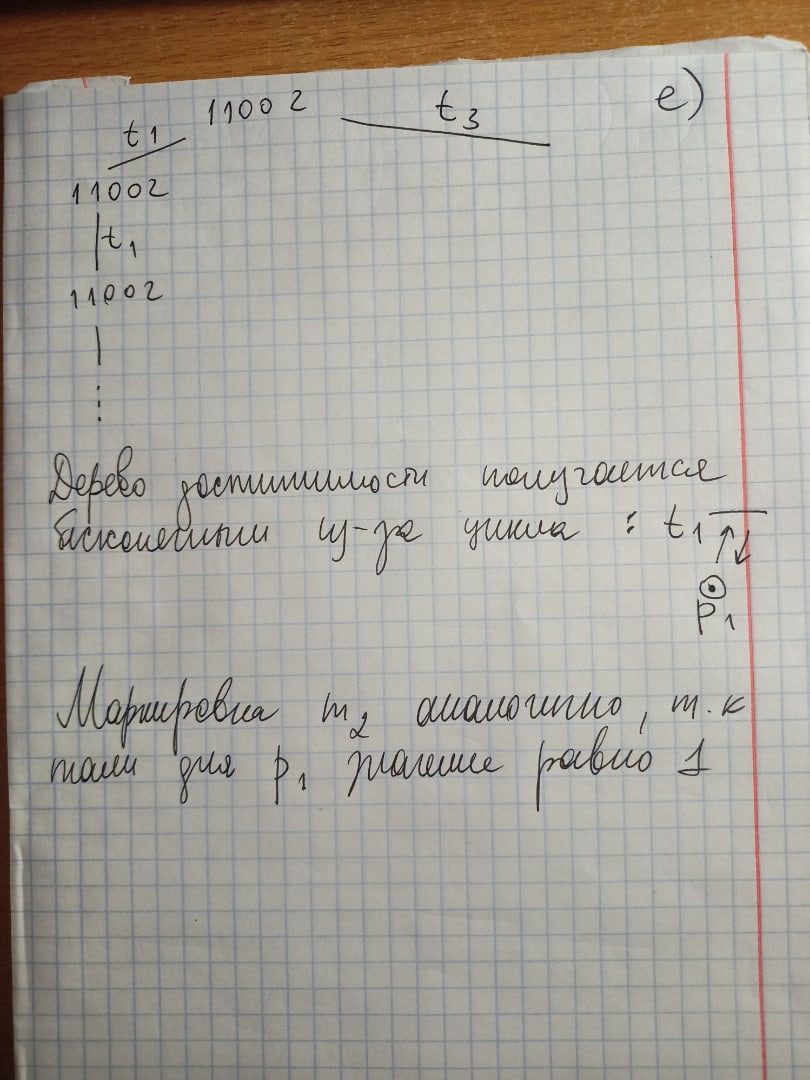 11002 t3 е)
t1
11002
t1
11002
Дерево достижимости получается
бесконечным из-за цикла : t1
p1
Маркировка m2 аналогично, т.к
там для p1 значение равно 1